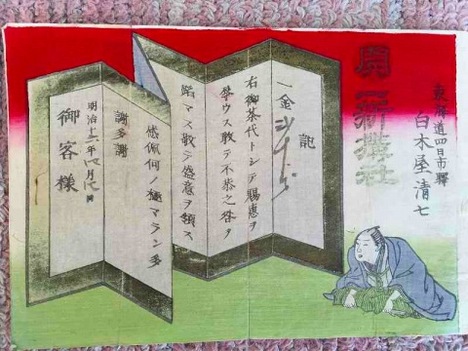 東海道四日市驛
白木屋清七
一新講社
記
一金
右御茶代トシテ賜恵ヲ
辱ウス敢テ不恭之咎ヲ
踏マス敢テ盛意ヲ領ス
感佩何ノ極マラン多
謝多謝
明治十二年 月 日
御客様